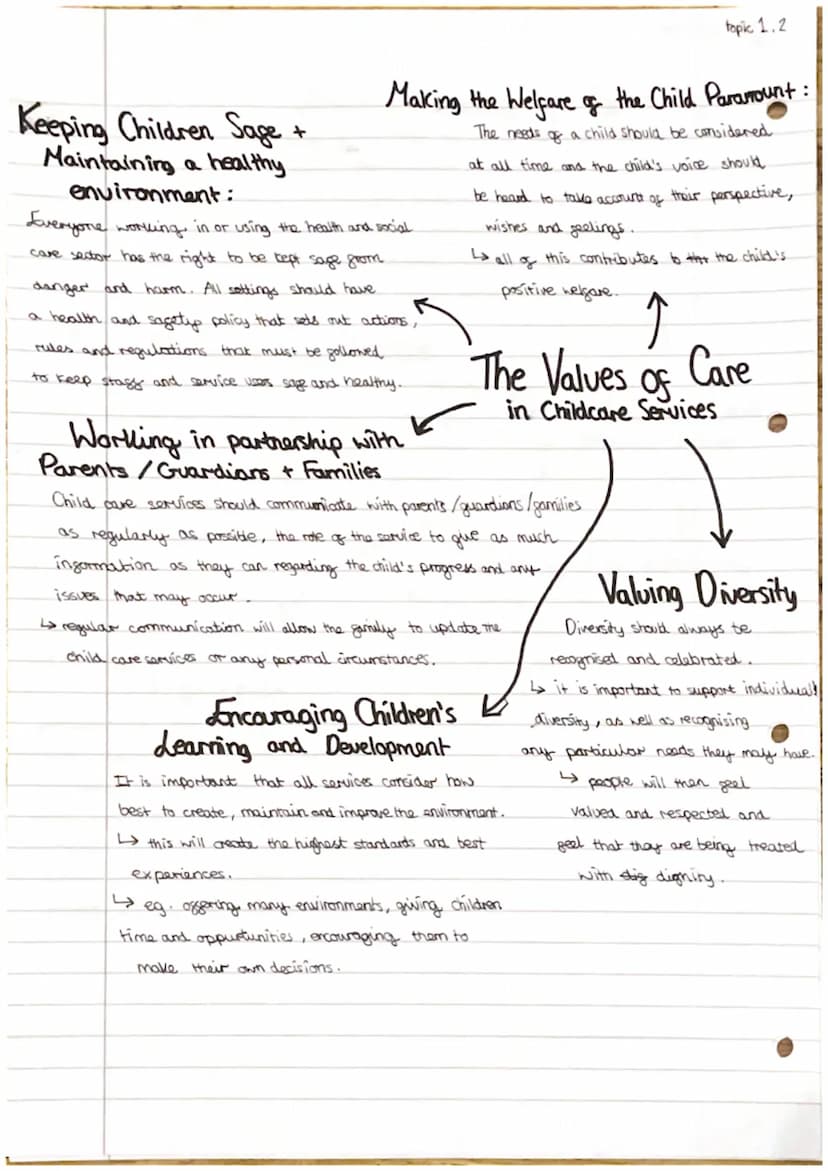 topic 1.2
Making the Welfare of the Child Paramount:
The needs of a child should be considered
at all time and the child's voice should
be heard to take account of their perspective,
wishes and feelings.
↳ all of this contributes to the child's
positive welfare.
Keeping Children Safe +
Maintaining a healthy
environment:
Everyone working in or using the health and social
care sector has the right to be kept safe from
danger and harm. All settings should have
a health and safetyp policy that sets out actions,
rules and regulations that must be followed
to keep staff and service users safe and healthy.
The Values of Care
in Childcare Services
Working in partnership with
Parents / Guardians + Families
Child care services should communicate with parents/guardians/families
as regularly as possible, the role of the service to give as much
information as they can regarding the child's progress and any
issues that may occur.
↳ regular communication will allow the family to update the
child care services or any personal circumstances.
Valuing Diversity
Diversity should always be
recognised and celebrated.
↳ it is important to support individual
diversity, as well as recognising
any particular needs they may have.
↳ people will then feel
valued and respected and
feel that they are being treated
with dignity.
Encouraging Children's
Learning and Development
It is important that all services consider how
best to create, maintain and improve the environment.
↳ this will create the highest standards and best
experiences.
↳ eg. offering many environments, giving children
time and oppurtunities, encouraging them to
make their own decisions.